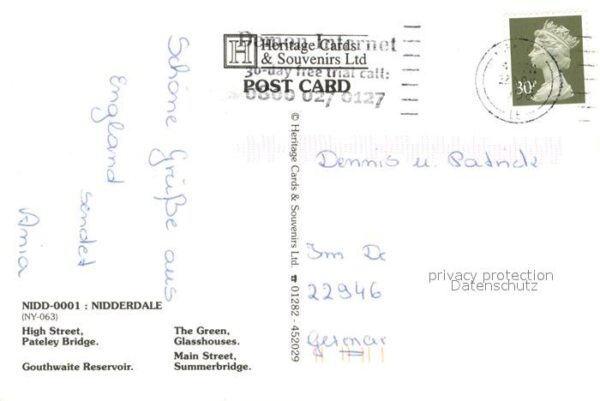 Schöne Grüße aus
England
sendet
Ania
H
Heritage Cards
& Souvenirs Ltd
POST CARD
Demon Internet
30-day free trial call:
0800 027 0127
30ᵖ
© Heritage Cards & Souvenirs Ltd. ☎ 01282 - 452029
Dennis u. Patrick
Im
22946
German
privacy protection
Datenschutz
NIDD-0001 : NIDDERDALE
(NY-063)
High Street,
Pateley Bridge.
Gouthwaite Reservoir.
The Green,
Glasshouses.
Main Street,
Summerbridge.